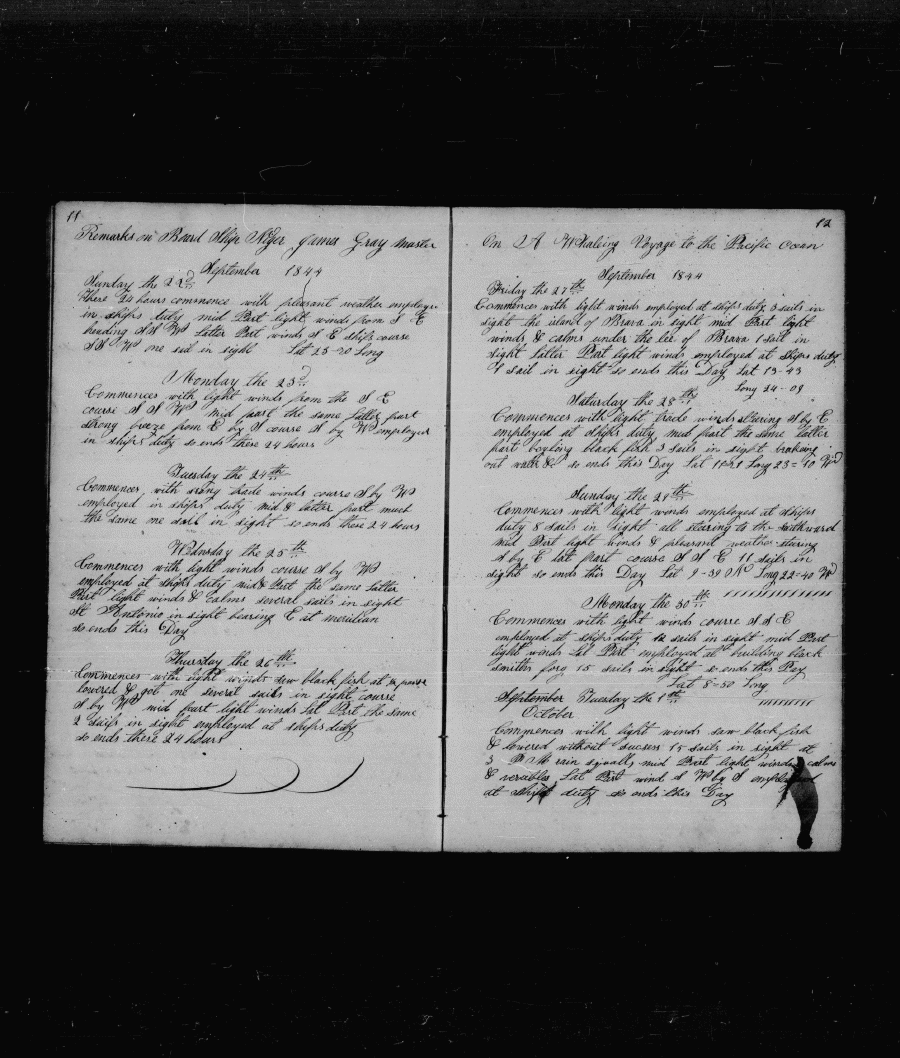 11
Remarks on Board Ship Niger James Gray Master
September 1844
Sunday the 22nd
These 24 hours commence with pleasant weather employed
in ships duty mid Part light winds from S E
heading S S W Latter Part winds S E ships course
S S W one sail in sight Lat 25-20 Long
Monday the 23d
Commences with light winds from the S E
course S S W mid part the same latter part
strong breeze from E by S course S by W employed
in ships duty so ends these 24 hours
Tuesday the 24th
Commences with strong trade winds course S by W
employed in ships duty mid & latter part much
the same one sail in sight so ends these 24 hours
Wednsday the 25th
Commences with light winds course S by W
employed at ships duty mid Part the same latter
Part light winds & calms several sails in sight
St Antonio in sight bearing E at meridian
so ends this Day
Thursday the 26th
Commences with light winds saw black fish at
lowered & got one several sails in sight course
S by W mid part light winds Lat Part the same
2 sails in sight employed at ships duty
so ends these 24 hours
12
On A Whaleing Voyage to the Pacific Ocean
September 1844
Friday the 27th
Commences with light winds employed at ships duty 3 sails in
sight the island of Brava in sight mid Part light
winds & calms under the lee of Brava 1 sail in
sight latter Part light winds employed at ships duty
1 sail in sight so ends this Day Lat 13-43
Long 24-09
Saturday the 28th
Commences with light trade winds stearing S by E
employed at ships duty mid part the same latter
part boyling black fish 3 sails in sight
out so ends this Day Lat Long 23=40 Wd
Sunday the 29th
Commences with light winds employed at ships
duty 8 sails in sight all staring to the southward
mid Part light winds & pleasant weather staring
S by E lat part course S S E 11 sails in
sight so ends this Day Lat 9-39 N Long 22-40 Wd
Monday the 30th
Commences with light winds course S S E
employed at ships duty 12 sails in sight mid Part
light winds Lat Part employed at building black
smiths forg 15 sails in sight so ends this Day
Lat 8=50 Long
September Tuesday the 1th
October
Commences with light winds saw black fish
& lowered without sucsess 15 sails in sight at
3 P M rain squalls mid Part light winds calms
& veriables Lat Part wind S W by S employed
at ships duty so ends this Day